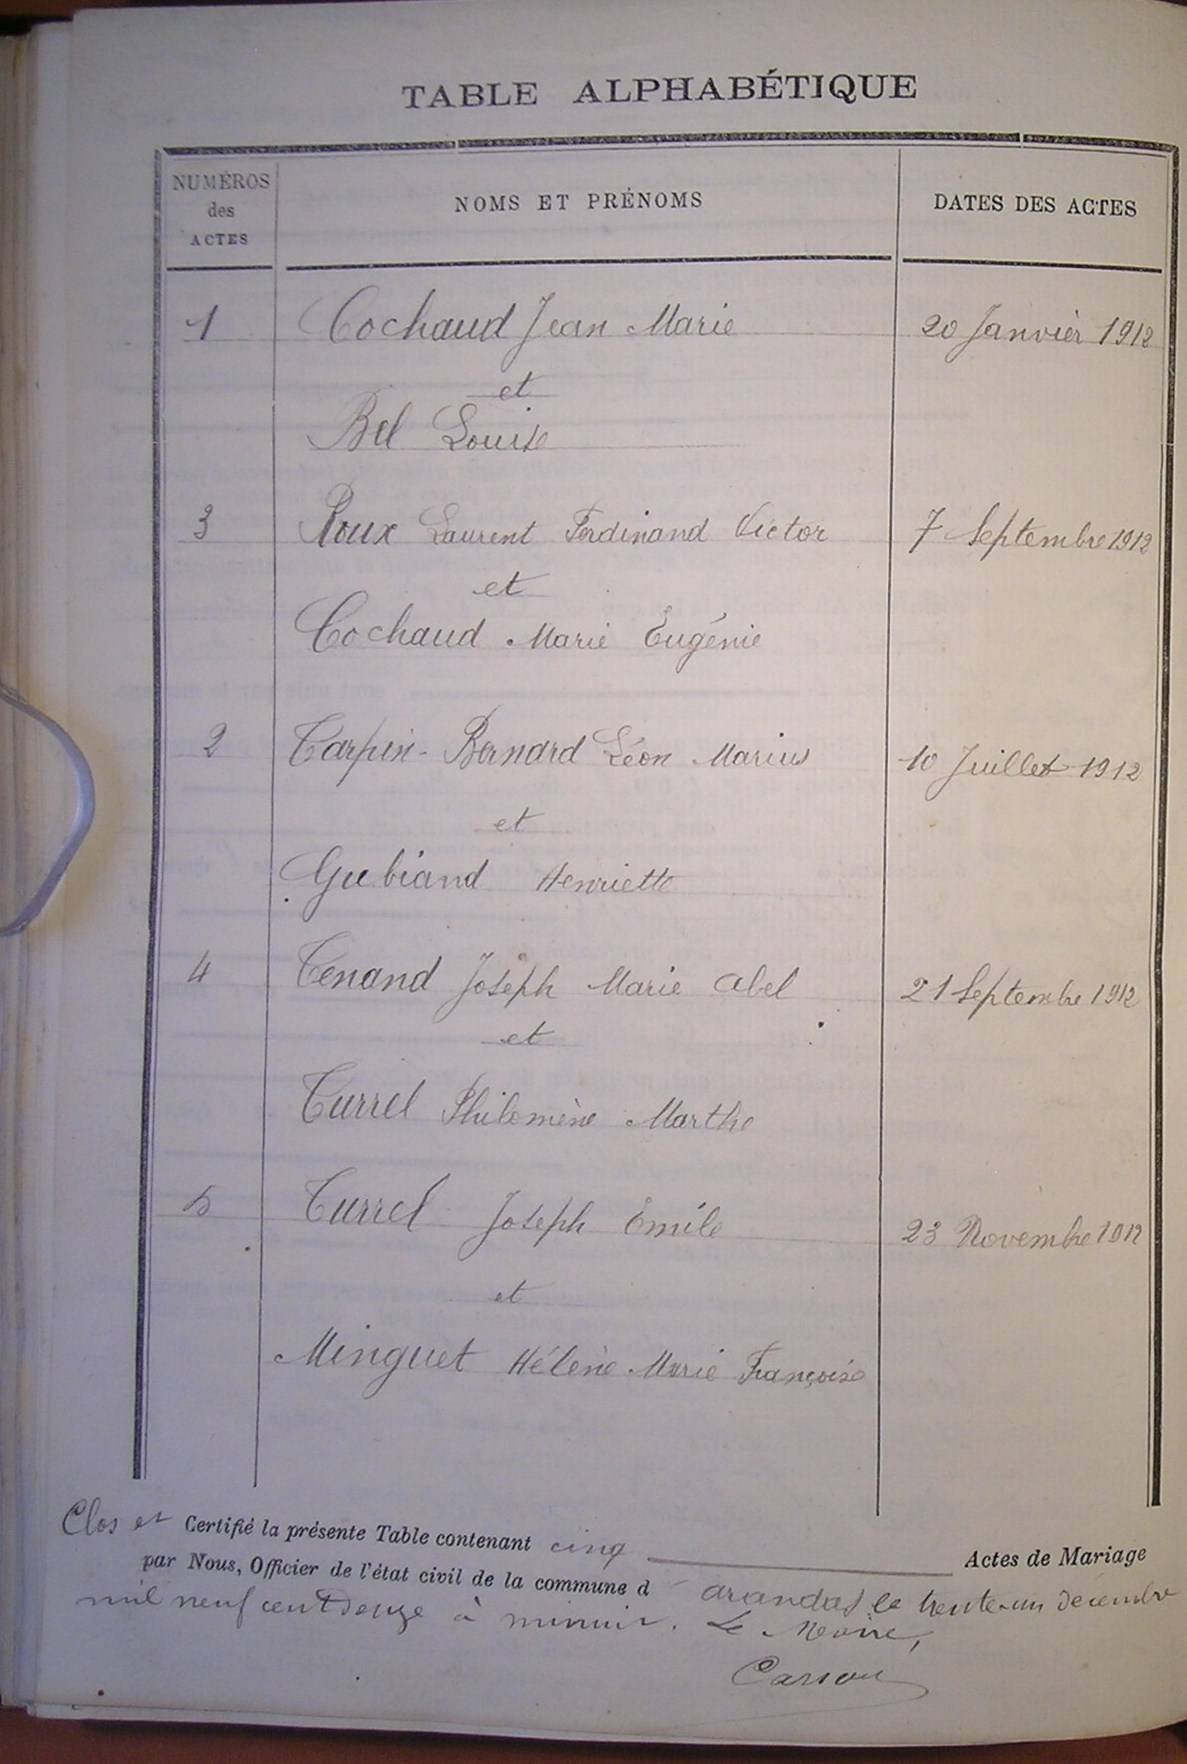 TABLE ALPHABÉTIQUE
NUMÉROS des ACTES
NOMS ET PRÉNOMS
DATES DES ACTES
1 Cochaud Jean Marie 20 Janvier 1912
et
Bel Louise
3 Roux Laurent Ferdinand Victor 7 Septembre 1912
et
Cochaud Marie Eugénie
2 Tarpin-Bernard Léon Marius 10 Juillet 1912
et
Gubiand Henriette
4 Tenand Joseph Marie Abel 21 Septembre 1912
et
Turrel Philomène Marthe
5 Turrel Joseph Emile 23 Novembre 1912
et
Minguet Hélène Marie Françoise
Clos et Certifié la présente Table contenant cinq Actes de Mariage
par Nous, Officier de l'état civil de la commune d'Arandas le trente-un décembre
mil neuf cent douze à minuit. Le Maire,